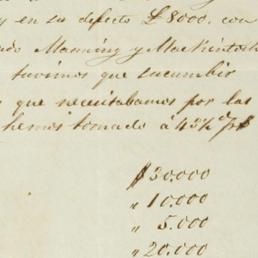 y en su defecto £8000. con
ado Manning y Mackintosh
tuvimos que sucumbir
s que necesitabamos por las
hemos tomado á 43½
$30.000
" 10.000
" 5.000
" 20.000